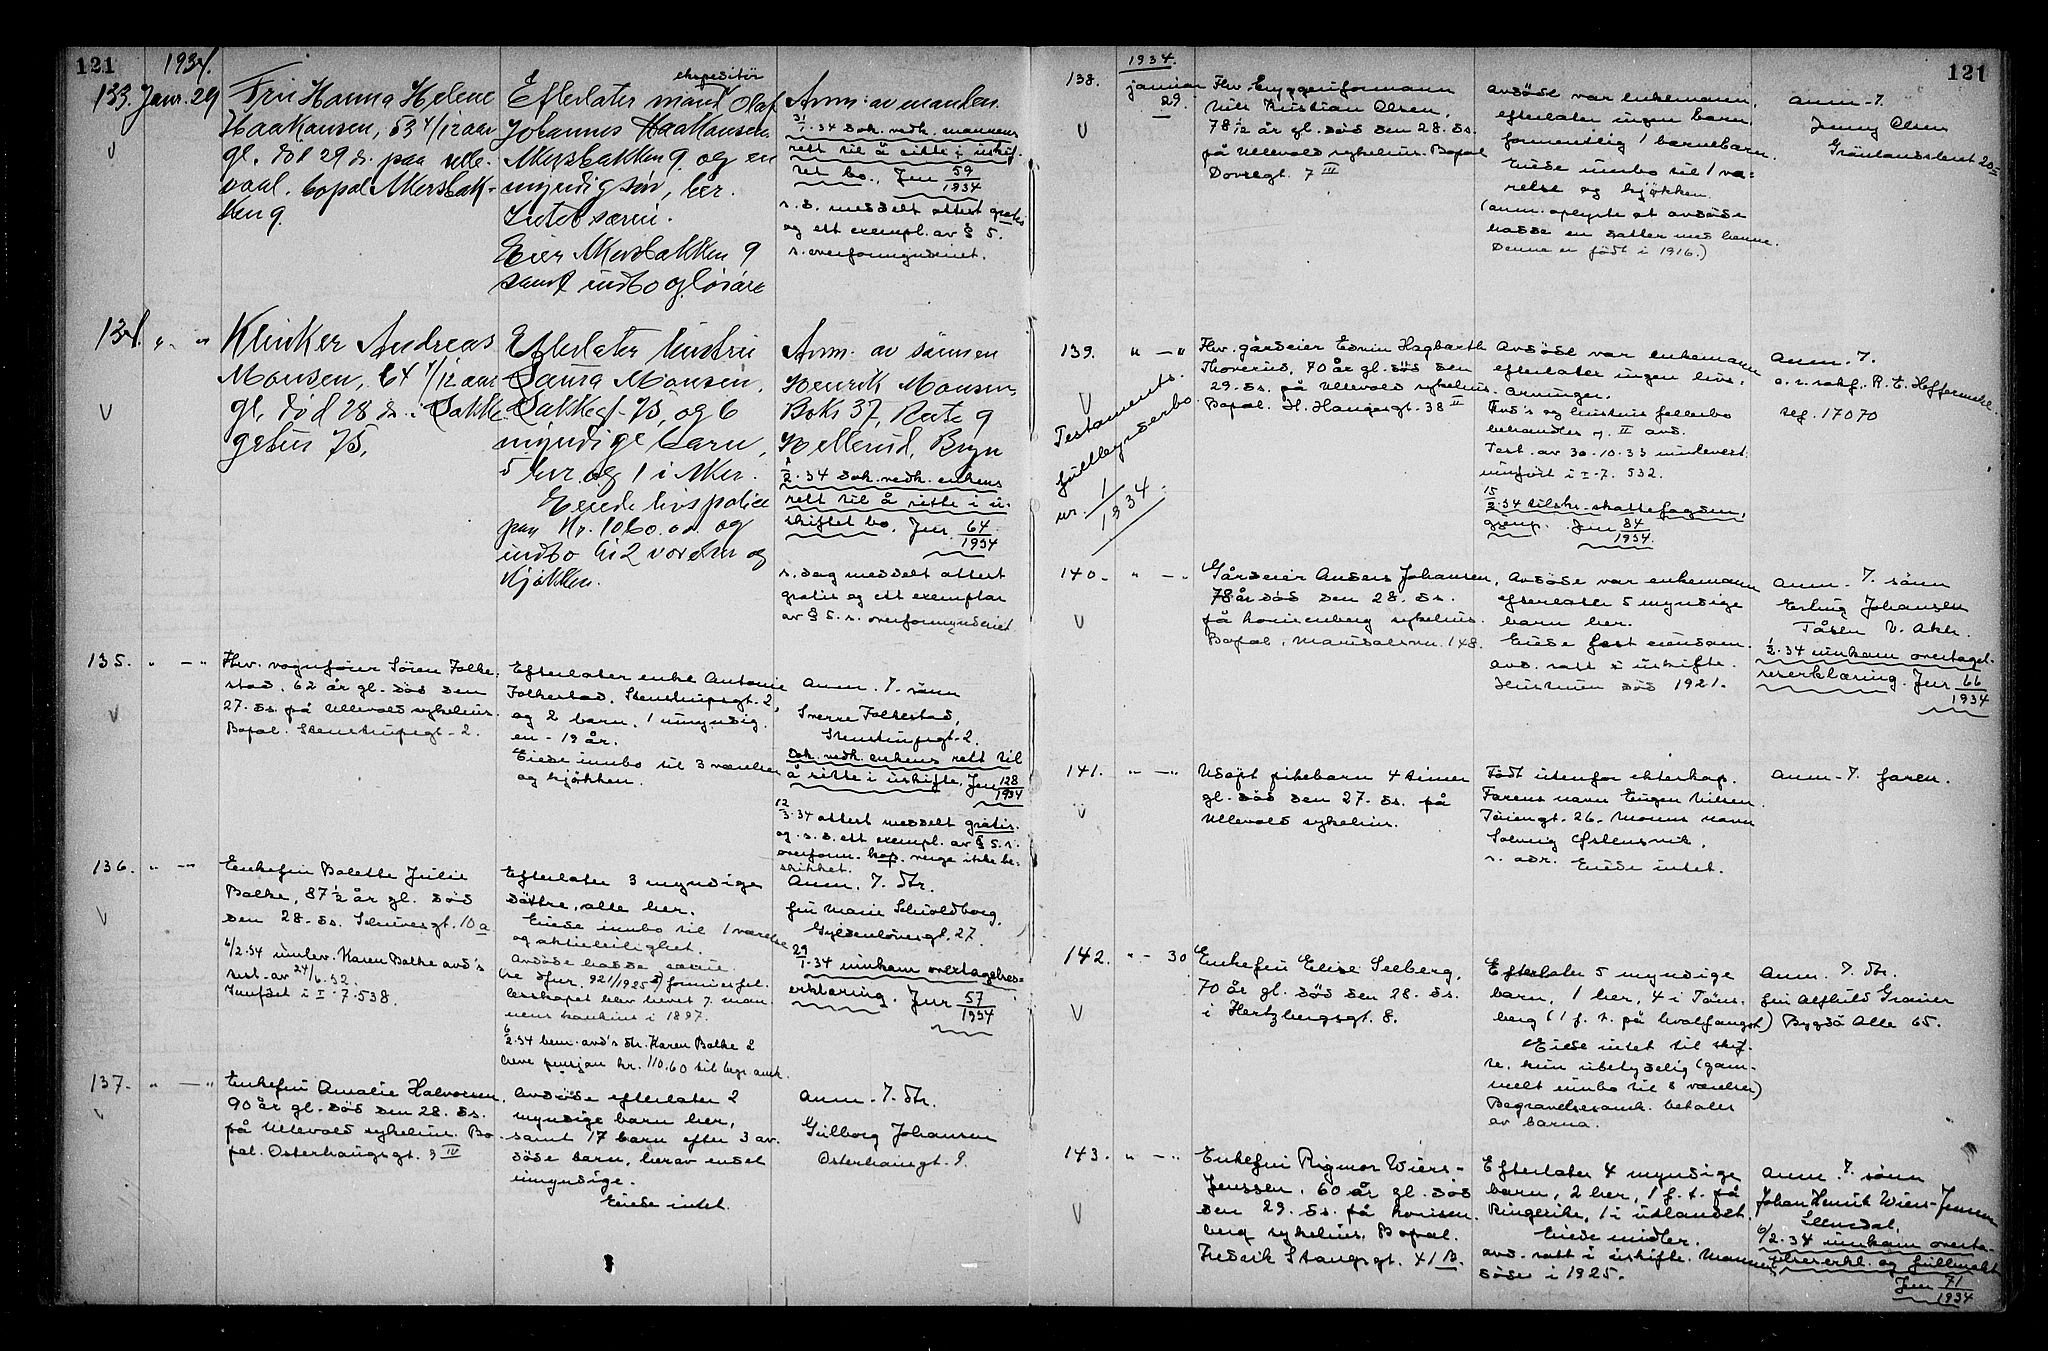 121
1934.
133. Janr. 29
Fru Hanna Helene
Haakansen, 53 4/12 aar
gl. død 29 ds. paa Ulle-
vaal. bopæl Akersbak-
ken 9
Efterlater mand ekspeditør Olaf
Johannes Haakansen
Akersbakken 9 og en
myndig søn, her.
Intet særeie.
Eier Akersbakken 9
samt indbo og løsøre
Anm: av manden
31/1-34 dok. vedk. mannens
rett til å sitte i uskif-
tet bo. Jnr 59/1934
s. d. meddelt attest gratis
og ett exempl. av § 5.
s. overformynderiet.
134. " - "
Klinker Andreas
Monsen, 64 1/12 aar
gl. død 28 ds. i Bakke
gaten 75.
Efterlater hustru
Laura Monsen,
Bakkegt 75, og 6
myndige barn,
5 her og 1 i Aker.
Eiede livspolice
paa Kr. 1060.00 og
indbo til 2 værelser og
kjøkken.
Anm: av sønnen
Henrik Monsen
Boks 37, Rute 9
Hellerud, Bryn
1/2-34 dok. vedk. enkens
rett til å sitte i u-
skiftet bo. Jnr 64/1934
s. dag meddelt attest
gratis og ett exemplar
av § 5. s. overformynderiet
135. " - "
Fhv. vognfører Søren Folke-
stad, 62 år gl. død den
27. ds. på Ullevold sykehus.
Bopæl. Stenstrupsgt. 2.
Efterlater enke Antonie
Folkestad, Stenstrupsgt. 2,
og 2 barn, 1 umyndig
en - 19 år.
Eiede innbo til 3 værelser
og kjøkken.
Anm. 7. sønn
Sverre Folkestad,
Stenstrupsgt. 2.
Dok. vedk. enkens rett til
å sitte i uskifte. Jnr 128/1934
12/3-34 attest meddelt gratis.
og s. d. ett exempl. av § 5. s.
overform. kap. verge ikke be-
skikket.
136. " - "
Enkefru Bolette Julie
Balke, 87 1/2 år gl. død
den 28. ds. Schivesgt. 10a
6/2-34 innlev. Karen Balke avd's
test. av 24/6.32.
Innført i I-7-538.
Efterlater 3 myndige
døttre, alle her.
Eiede innbo til 1 værelse
og aktieleilighet.
Avdøde hadde særeie.
(se Jnr. 921/1925) formuesfel-
lesskapet blev hevet 7. man-
nens konkurs i 1897.
6/2-34 bem. avd's dtr. Karen Balke 2
breve pensjon kr. 110.60 til begr. omk.
Anm. 7. dtr.
fru Marie Scholdborg,
Gyldenløvesgt. 27.
29/1-34 innkom overtagelses-
erklæring. Jnr 57/1934
137. " - "
Enkefru Amalie Halvorsen,
90 år gl. død den 28. ds.
på Ullevold sykehus. Bo-
pæl. Osterhausgt. 9 IV
Avdøde efterlater 2
myndige barn her,
samt 17 barn efter 3 av-
døde barn, herav endel
umyndige.
Eiede intet.
Anm. 7. dtr.
Gulborg Johansen
Osterhausgt. 9.
121
1934.
138. januar 29.
Fhv. bryggeriformann
Nils Kristian Olsen,
78 1/2 år gl. død den 28. ds.
på Ullevold sykehus. Bopæl
Dovregt. 7 III
Avdøde var enkemann,
efterlater ingen barn,
formentlig 1 barnebarn.
Eiede innbo til 1 væ-
relse og kjøkken.
(anm. oplyste at avdøde
hadde en datter med henne.
Denne er født i 1916.)
Anm. 7.
Jenny Olsen
Grønlandsleret 20 II
139. " - "
Testaments-
fullbyrderbo
nr. 1/1934.
Fhv. gårdeier Edvin Hagbarth
Thoverud, 70 år gl. død den
29. ds. på Ullevold sykehus.
Bopæl. H. Haugesgt. 38 II
Avdøde var enkemann
efterlater ingen livs-
arvinger.
Avd's og hustrus fellesbo
behandles 7. II avd.
Test. av 30-10-33 innlevert.
innført i I-7. 532.
15/2-34 tilskr. skattefogden,
gjenp. Jnr 84/1934.
Anm. 7.
o. r. sakf. R. E. Heffermehl.
tlf. 17070
140. " - "
Gårdeier Anders Johansen,
78 år død den 28. ds.
på Lovisenberg sykehus.
Bopæl, Maridalsvn. 148.
Avdøde var enkemann
efterlater 5 myndige
barn her.
Eiede fast eiendom.
avd. satt i uskifte.
Hustruen død 1921.
Anm. 7. sønn
Erling Johansen
Tåsen V. Aker.
1/2-34 innkom overtagel-
seserklæring. Jnr 66/1934
141. " - "
Udøpt pikebarn 4 timer
gl. død den 27. ds. på
Ullevold sykehus.
Født utenfor ekteskap.
Farens navn Eugen Nilsen
Tøiengt. 26. Morens navn
Solveig Østensvik,
s. adr. Eiede intet.
Anm. 7. faren.
142. " - 30
Enkefru Elise Seeberg,
70 år gl. død den 28. ds.
i Hertzbergsgt. 8.
Efterlater 5 myndige
barn, 1 her, 4 i Tøns-
berg (1 f. t. på hvalfangst)
Eiede intet til skif-
te, kun ubetydelig (gam-
melt innbo til 2 værelser)
Begravelsesomk. betales
av barna.
Anm. 7. dtr.
fru Alfhild Graner
Bygdø Alle 65.
143. " - "
Enkefru Rigmor Wiers-
Jenssen, 60 år gl. død
den 29. ds. på Lovisen-
berg sykehus. Bopæl.
Fredrik Stangsgt. 41 B.
Efterlater 4 myndige
barn, 2 her, 1 f. t. på
Ringerike, 1 i utlandet.
Eiede midler.
avd. satt i uskifte. Mannen
døde i 1925.
Anm. 7. sønn
Johan Henrik Wiers-Jenssen
6/2-34 innkom overta-
gelseserkl. og fullmakt
Jnr 71/1934